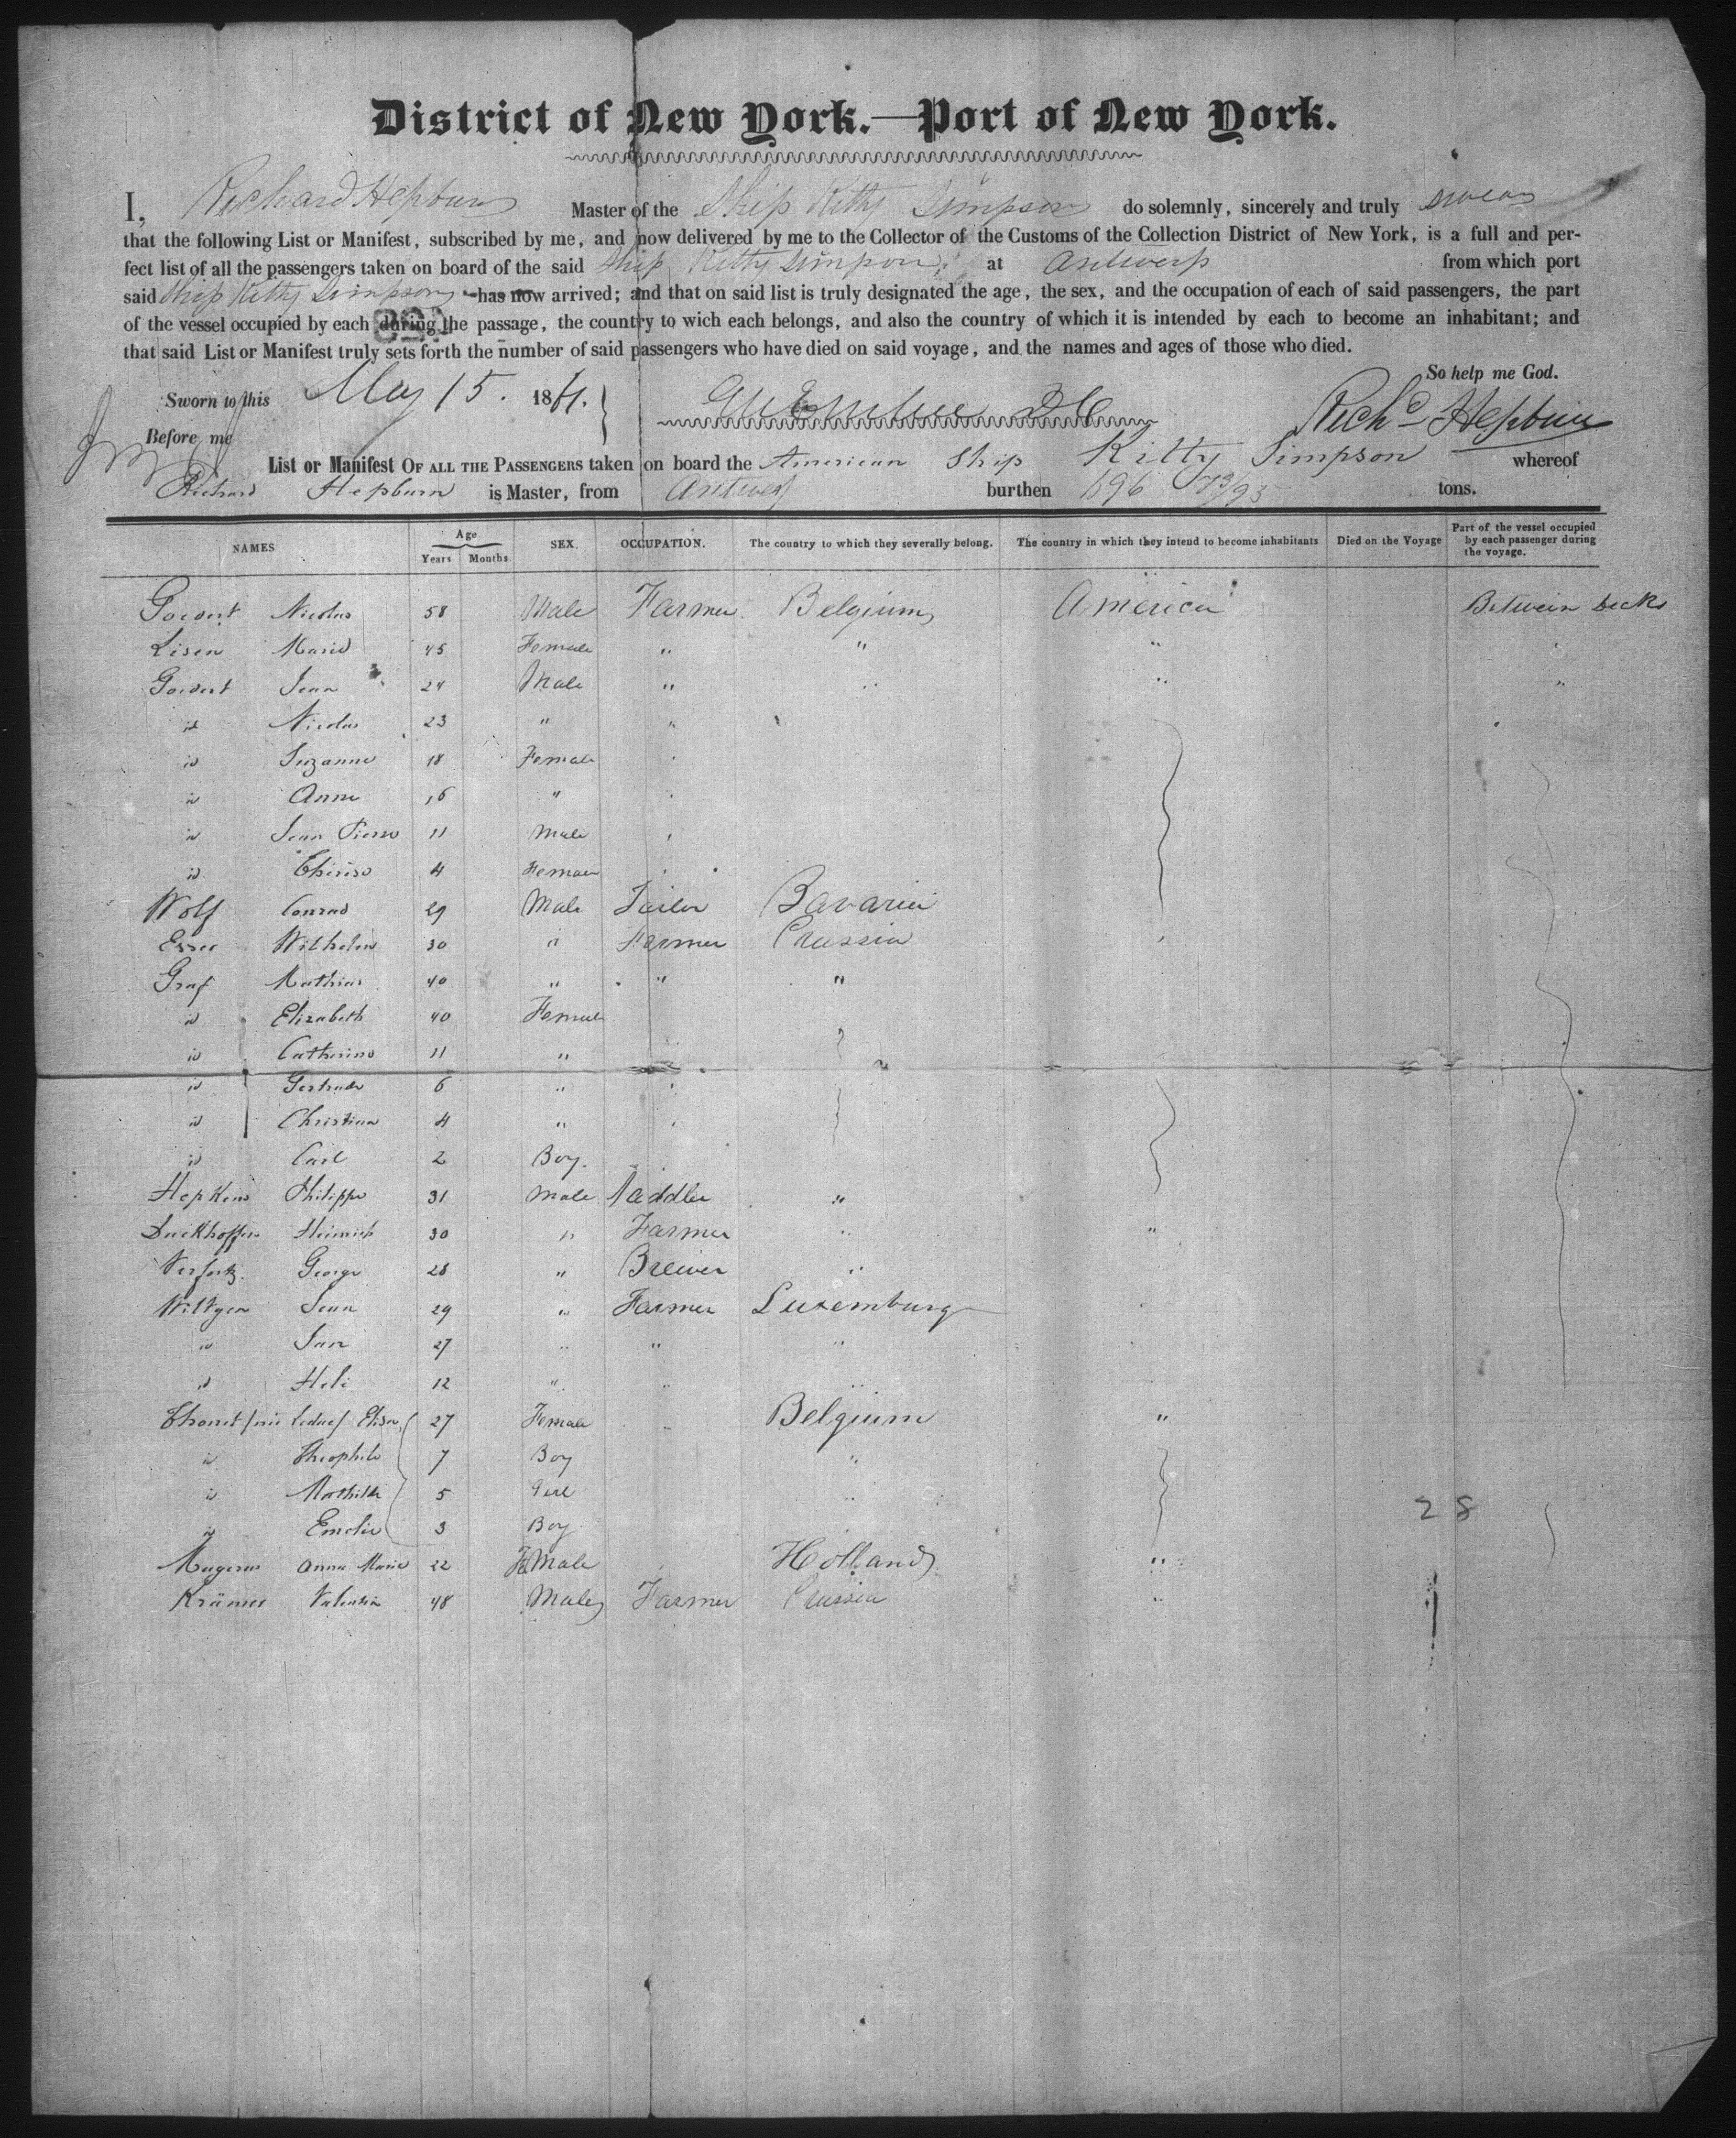 District of New York.—Port of New York.
I, Richard Hepburn Master of the Ship Kitty Simpson do solemnly, sincerely and truly swear
that the following List or Manifest, subscribed by me, and now delivered by me to the Collector of the Customs of the Collection District of New York, is a full and per-
fect list of all the passengers taken on board of the said Ship Kitty Simpson at Antwerp from which port
said Ship Kitty Simpson has now arrived; and that on said list is truly designated the age, the sex, and the occupation of each of said passengers, the part
of the vessel occupied by each during the passage, the country to wich each belongs, and also the country of which it is intended by each to become an inhabitant; and
that said List or Manifest truly sets forth the number of said passengers who have died on said voyage, and the names and ages of those who died.
So help me God.
Sworn to this May 15. 1861.
Richd Hepburn
Before me
List or Manifest OF ALL THE PASSENGERS taken on board the American Ship Kitty Simpson whereof
Richard Hepburn is Master, from Antwerp burthen 696 73/95 tons.
NAMES Age Years Months SEX. OCCUPATION. The country to which they severally belong. The country in which they intend to become inhabitants Died on the Voyage Part of the vessel occupied by each passenger during the voyage.
Goedert Nicolas 58 Male Farmer Belgium America Between decks
Lisen Marie 45 Female " " " "
Goedert Jean 24 Male " " " "
id Nicolas 23 " "
id Suzanne 18 Female
id Anne 16 "
id Jean Pierre 11 Male
id Thérèse 4 Female
Wolf Conrad 29 Male Tailor Bavaria
Esser Wilhelm 30 " Farmer Prussia
Graf Mathias 40 " " "
id Elizabeth 40 Female
id Catherine 11 "
id Gertrude 6 "
id Christina 4 "
id Carl 2 Boy.
Hepkens Philippe 31 Male Saddler "
Heinrich 30 " Farmer " "
George 28 " Brewer "
Wiltgen Jean 29 " Farmer Luxemburg
id Jan 27 " " "
id 12 " " "
Thonet née Leduc Elisa 27 Female Belgium "
id Theophile 7 Boy "
id Mathilde 5 Girl "
id Emelie 3 Boy
28
Anna Marie 22 FeMale Holland "
Krämer Valentin 48 Male Farmer Prussia "